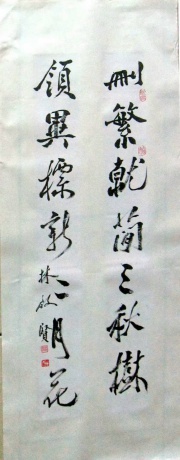 刪繁就簡三秋樹
領異標新二月花
林啟賢